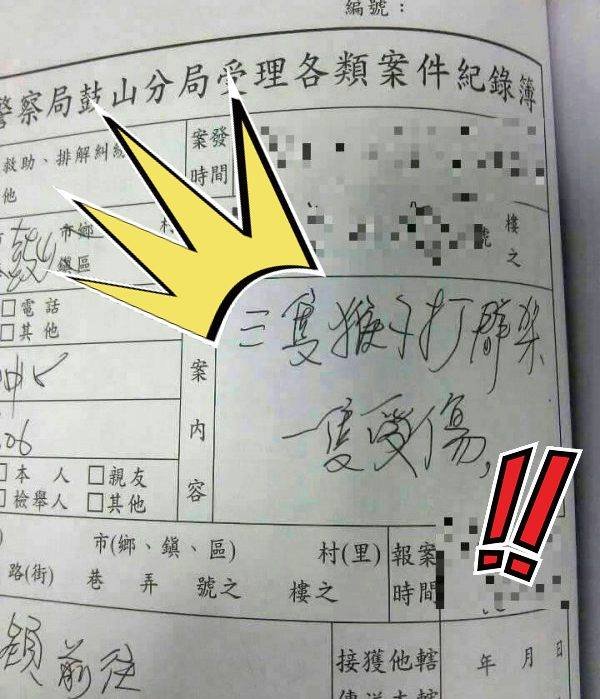 編號：
警察局鼓山分局受理各類案件紀錄簿
救助、排解糾紛
他
案發
時間
市鄉
鎮區
村
號
樓
之
□電話
□其他
三隻猴子打群架
一隻受傷，
案
內
容
□本人 □親友
□檢舉人 □其他
市(鄉、鎮、區) 村(里)
路(街) 巷 弄 號之 樓之
報案
時間
前往
接獲他轄
年 月 日
!!